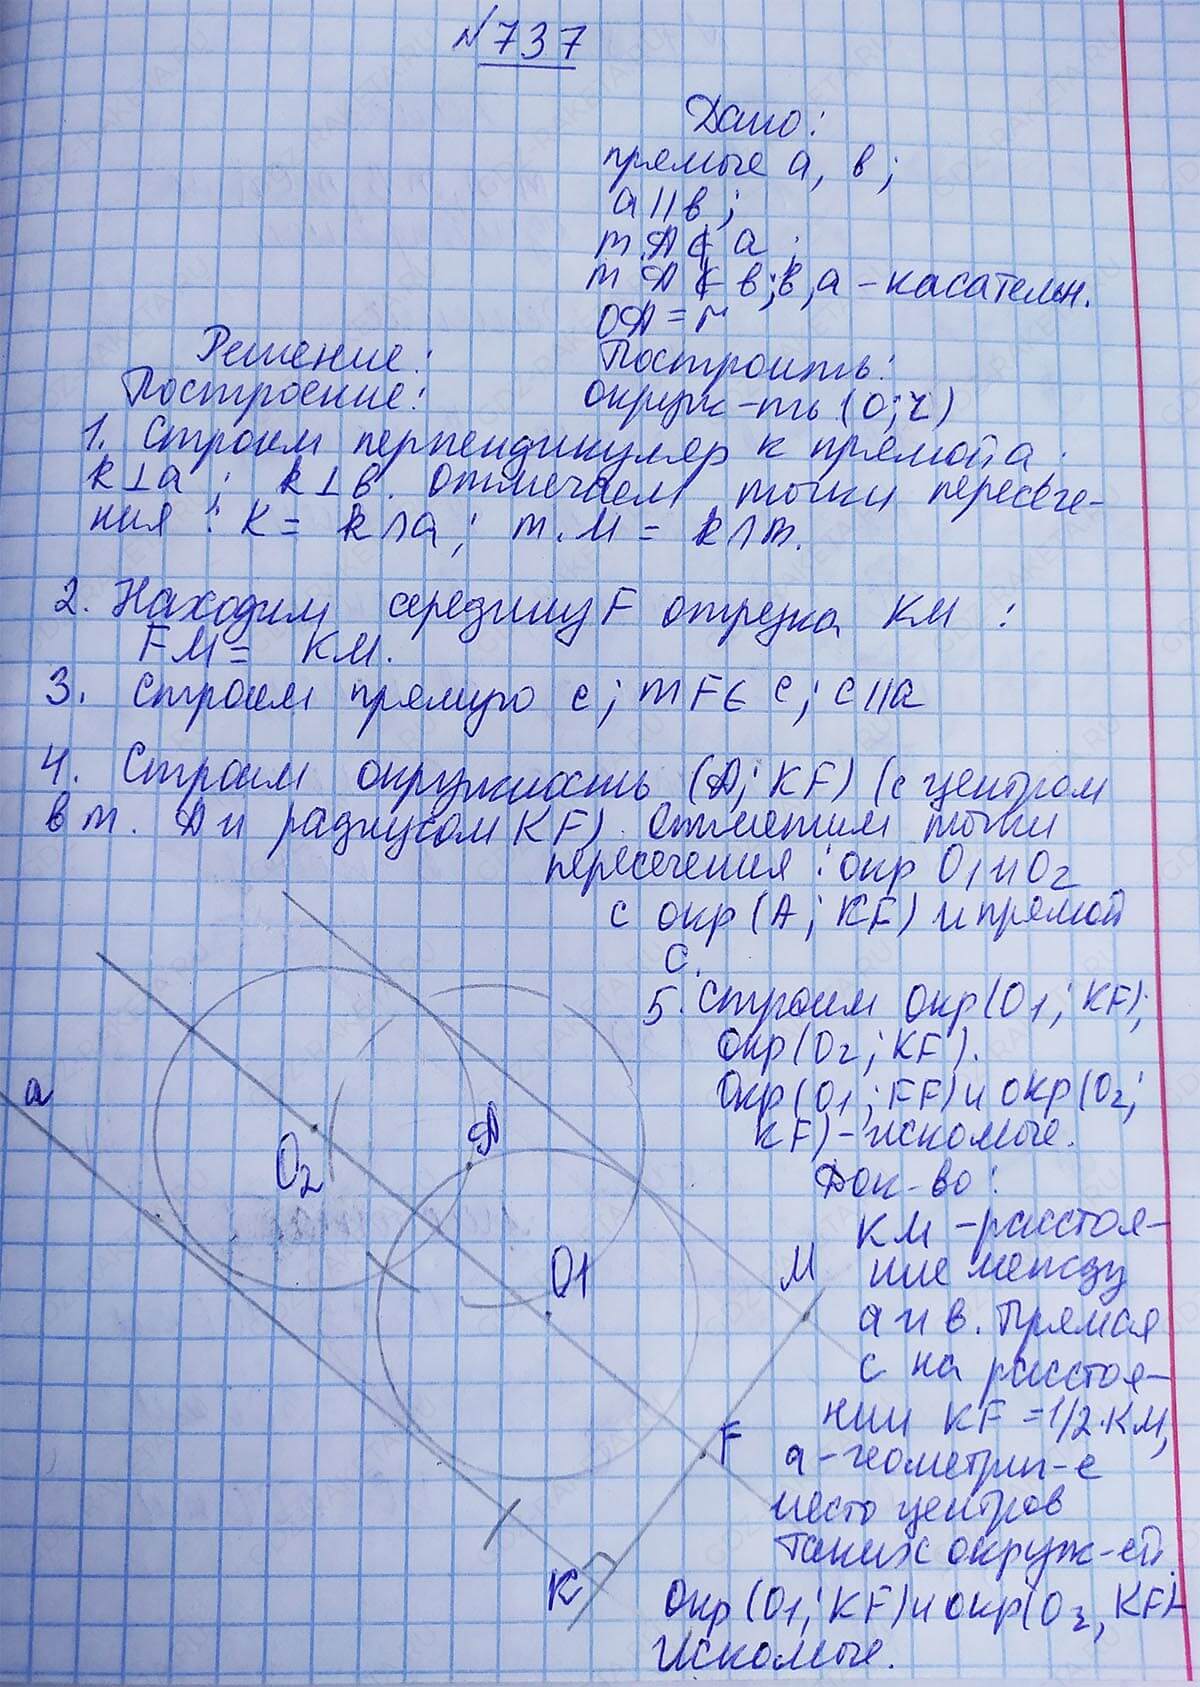 №737
Дано:
прямые а, в;
а || в;
т. А ∉ а ;
т А ∉ в; в, а - касательн.
ОА = r
Решение:
Построить:
Построение:
окруж-ть (О; r)
1. Строим перпендикуляр к прямой а ;
k⊥а ; k⊥в. Отмечаем точки пересече-
ния : К = k∩а ; т. М = k∩m.
2. Находим середину F отрезка КМ :
FM = KM.
3. Строим прямую с ; т F ∈ с ; с || а
4. Строим окружность (А; KF) (с центром
в т. А и радиусом KF). Отметим точки
пересечения : окр О1 и О2
с окр (А ; KF) и прямой
С.
5. Строим окр (О1 ; KF);
окр (О2 ; KF).
Окр (О1 ; FF) и окр (О2;
KF) - искомые.
Док-во :
КМ - расстоя-
ние между
а и в. Прямая
с на расстоя-
нии KF = 1/2·KM,
а - геометрич-е
место центров
таких окруж-ей.
Окр (О1; KF) и окр (О2, KF)-
искомые.
а
О2
А
О1
М
F
К